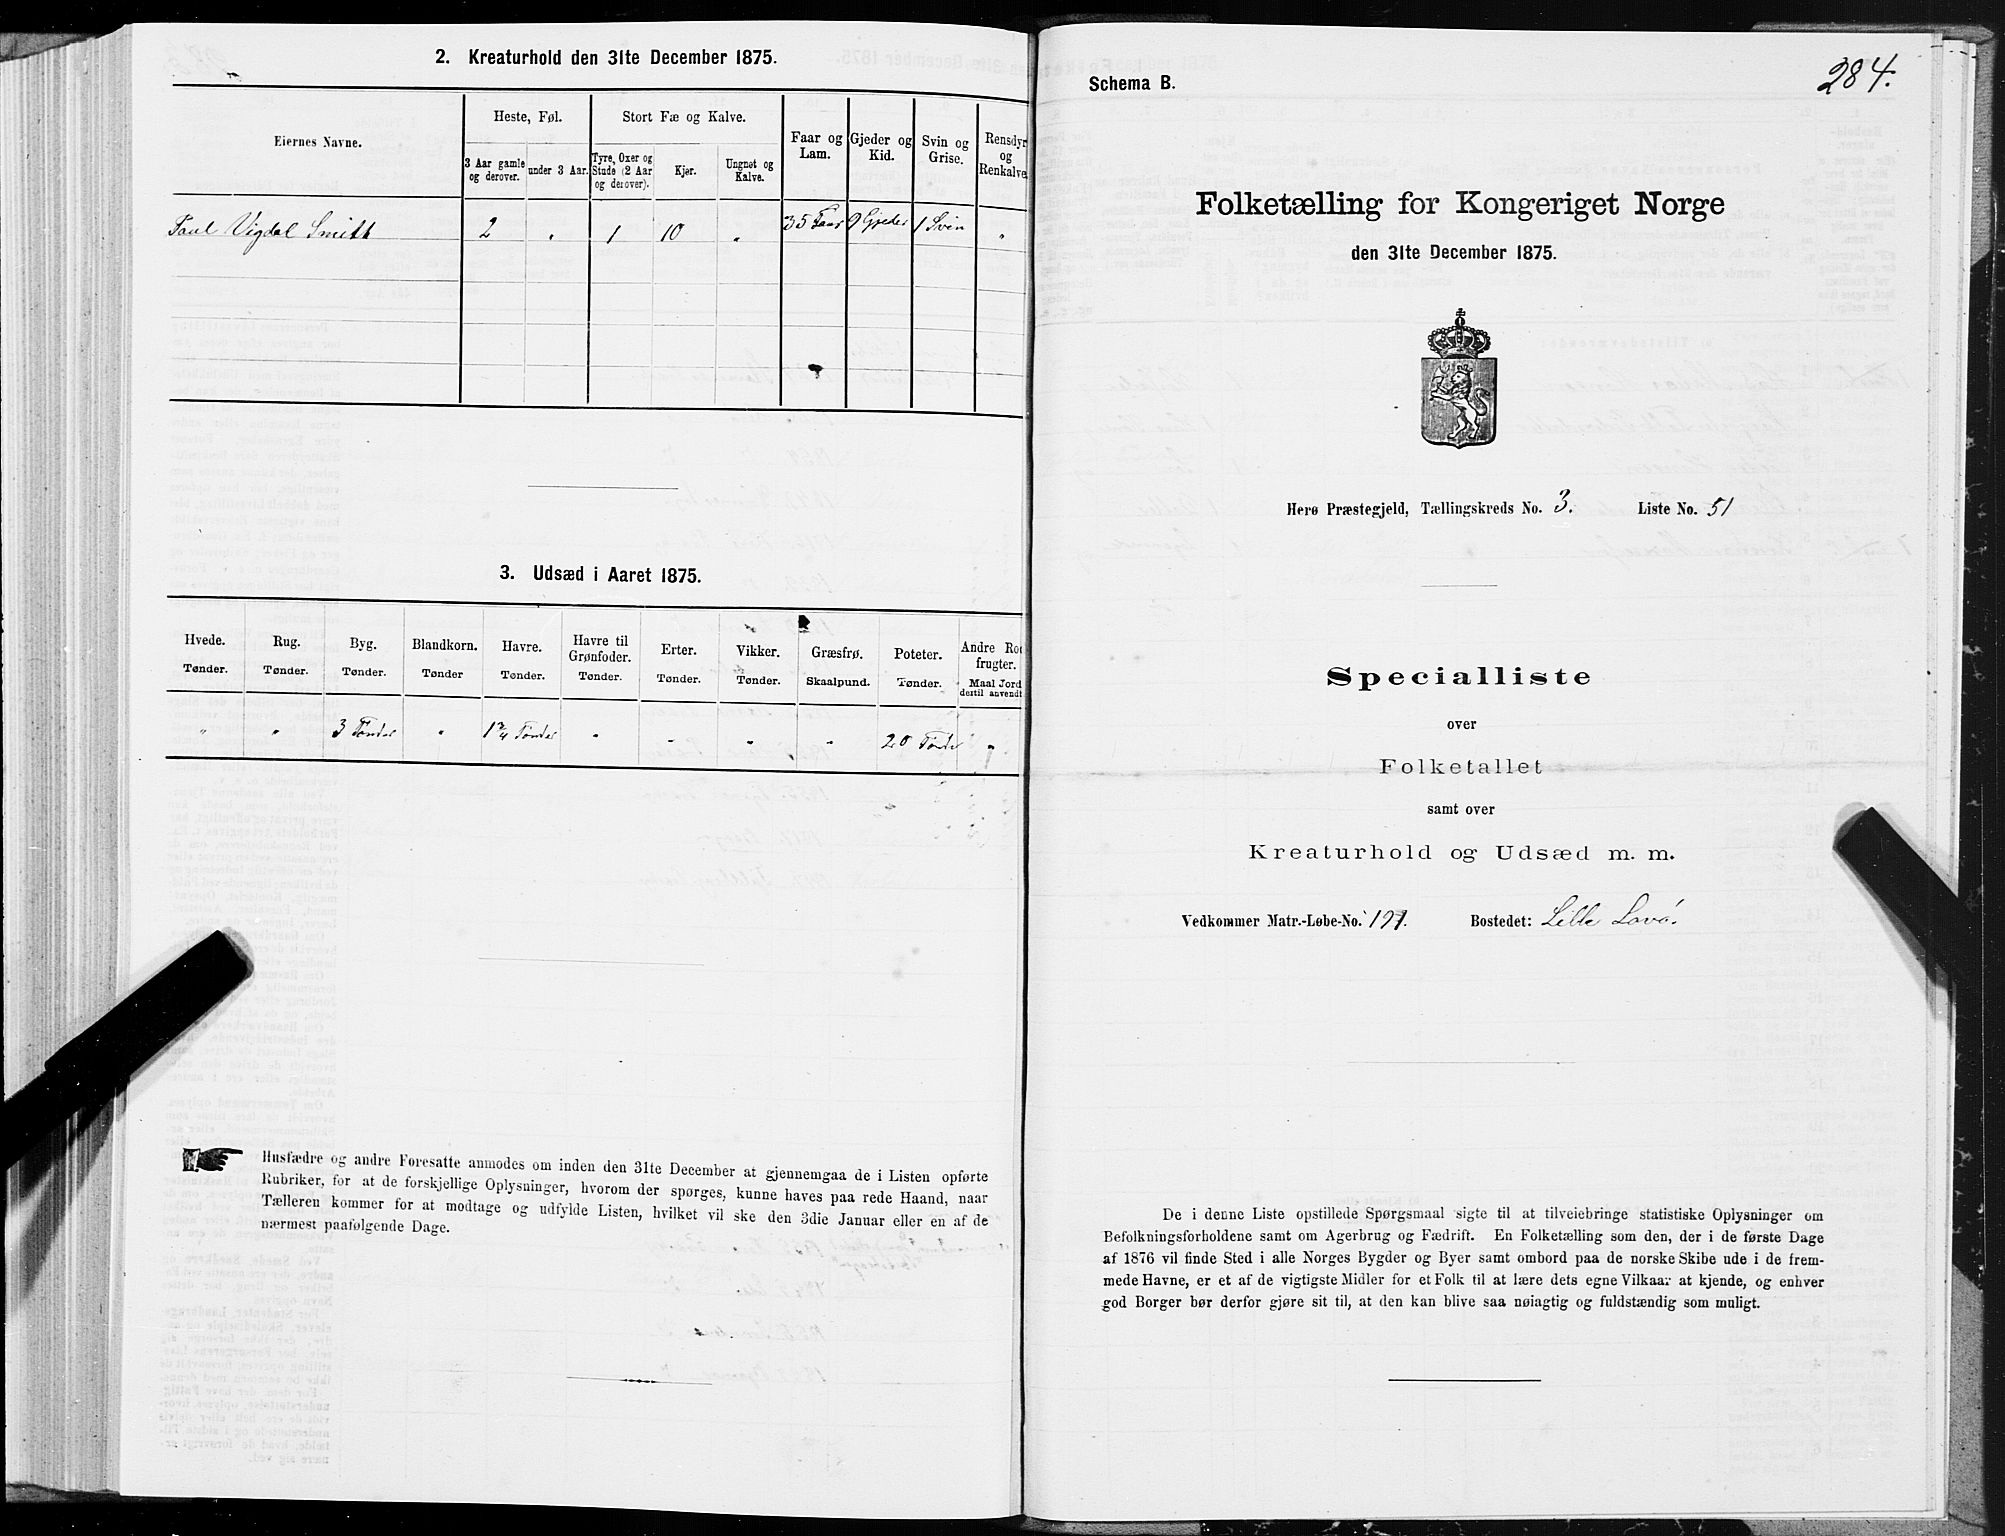 2. Kreaturhold den 31te December 1875.
Eiernes Navne.
Heste, Føl.
Stort Fæ og Kalve.
Faar og Lam.
Gjeder og Kid.
Svin og Grise.
Rensdyr og Renkalve.
3 Aar gamle og derover.
under 3 Aar.
Tyre, Oxer og Stude (2 Aar og derover).
Kjør.
Ungnøt og Kalve.
Paul Vigdal Smitt 2 " 1 10 " 35 Faar 9 Gjeder 1 Svin "
3. Udsæd i Aaret 1875.
Hvede. Rug. Byg. Blandkorn. Havre. Havre til Grønfoder. Erter. Vikker. Græsfrø. Poteter. Andre Rodfrugter.
Tønder. Tønder. Tønder. Tønder Tønder. Tønder. Tønder. Tønder. Skaalpund. Tønder. Maal Jord dertil anvendt
" " 3 Tønder " 1 3/4 Tønder " " " " 20 Tønder "
Husfædre og andre Foresatte anmodes om inden den 31te December at gjennemgaa de i Listen opførte
Rubriker, for at de forskjellige Oplysninger, hvorom der spørges, kunne haves paa rede Haand, naar
Tælleren kommer for at modtage og udfylde Listen, hvilket vil ske den 3die Januar eller en af de
nærmest paafølgende Dage.
Schema B.
284.
Folketælling for Kongeriget Norge
den 31te December 1875.
Herø Præstegjeld, Tællingskreds No. 3. Liste No. 51
Specialliste
over
Folketallet
samt over
Kreaturhold og Udsæd m. m.
Vedkommer Matr.-Løbe-No. 191. Bostedet: Lille Lovö.
De i denne Liste opstillede Spørgsmaal sigte til at tilveiebringe statistiske Oplysninger om
Befolkningsforholdene samt om Agerbrug og Fædrift. En Folketælling som den, der i de første Dage
af 1876 vil finde Sted i alle Norges Bygder og Byer samt ombord paa de norske Skibe ude i de frem-
mede Havne, er et af de vigtigste Midler for et Folk til at lære dets egne Vilkaar at kjende, og enhver
god Borger bør derfor gjøre sit til, at den kan blive saa nøiagtig og fuldstændig som muligt.